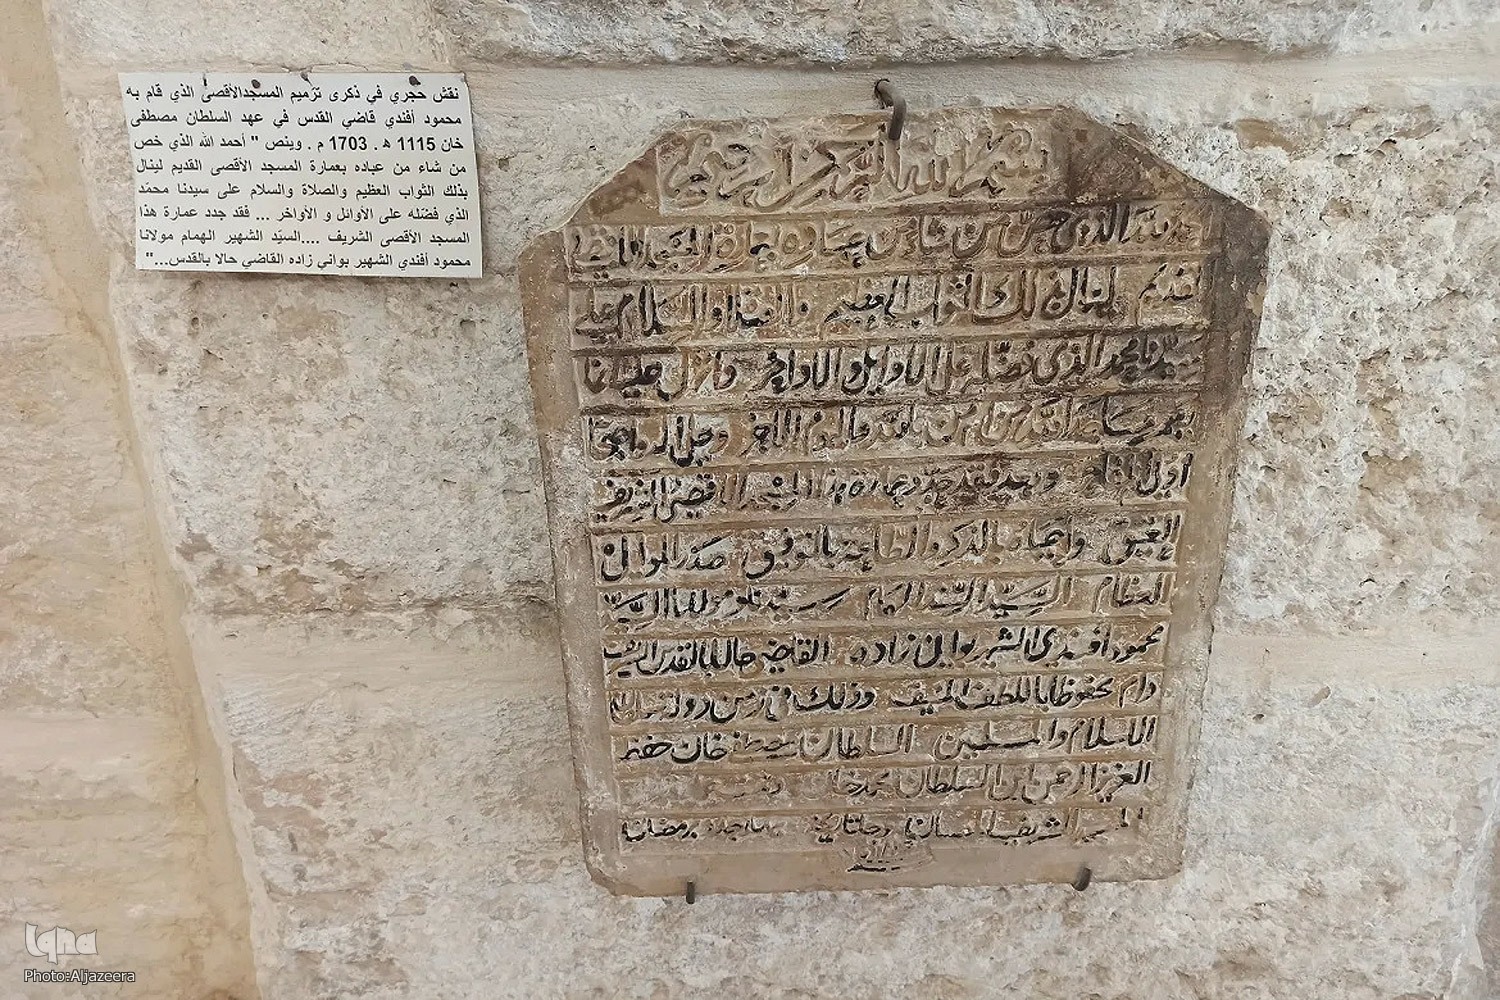 نقش حجري في ذكرى ترميم المسجدالأقصى الذي قام به
محمود أفندي قاضي القدس في عهد السلطان مصطفى
خان 1115 هـ . 1703 م . وينص " أحمد الله الذي خص
من شاء من عباده بعمارة المسجد الأقصى القديم لينال
بذلك الثواب العظيم والصلاة والسلام على سيدنا محمّد
الذي فضّله على الأوائل و الأواخر ... فقد جدد عمارة هذا
المسجد الأقصى الشريف ....السيّد الشهير الهمام مولانا
محمود أفندي الشهير بواني زاده القاضي حالا بالقدس..."
بسم الله الرحمن الرحيم
لله الذي خص من شاء من عباده بعمارة المسجد الاقصا
القديم لينال بذلك الثواب العظيم والصلاة والسلام على
سيدنا محمد الذي فضله على الاوايل والاواخر وانزل عليه انما
يعمر مساجد الله من امن بالله واليوم الاخر
وبعد فقد جدد عمارة هذا المسجد الاقصى الشريف
بالتوفيق صدر الموالي
العظام السيد السند الهمام مولانا السيد
محمود افندي الشهير بواني زاده القاضي حالا بالقدس الشريف
دام محفوظا باللطف المنيف وذلك في زمن دولة
الاسلام والمسلمين السلطان مصطفى خان
العزيز الرحمن ابن السلطان محمد خان
الشريف رمضان
Iqna
Photo:Aljazeera